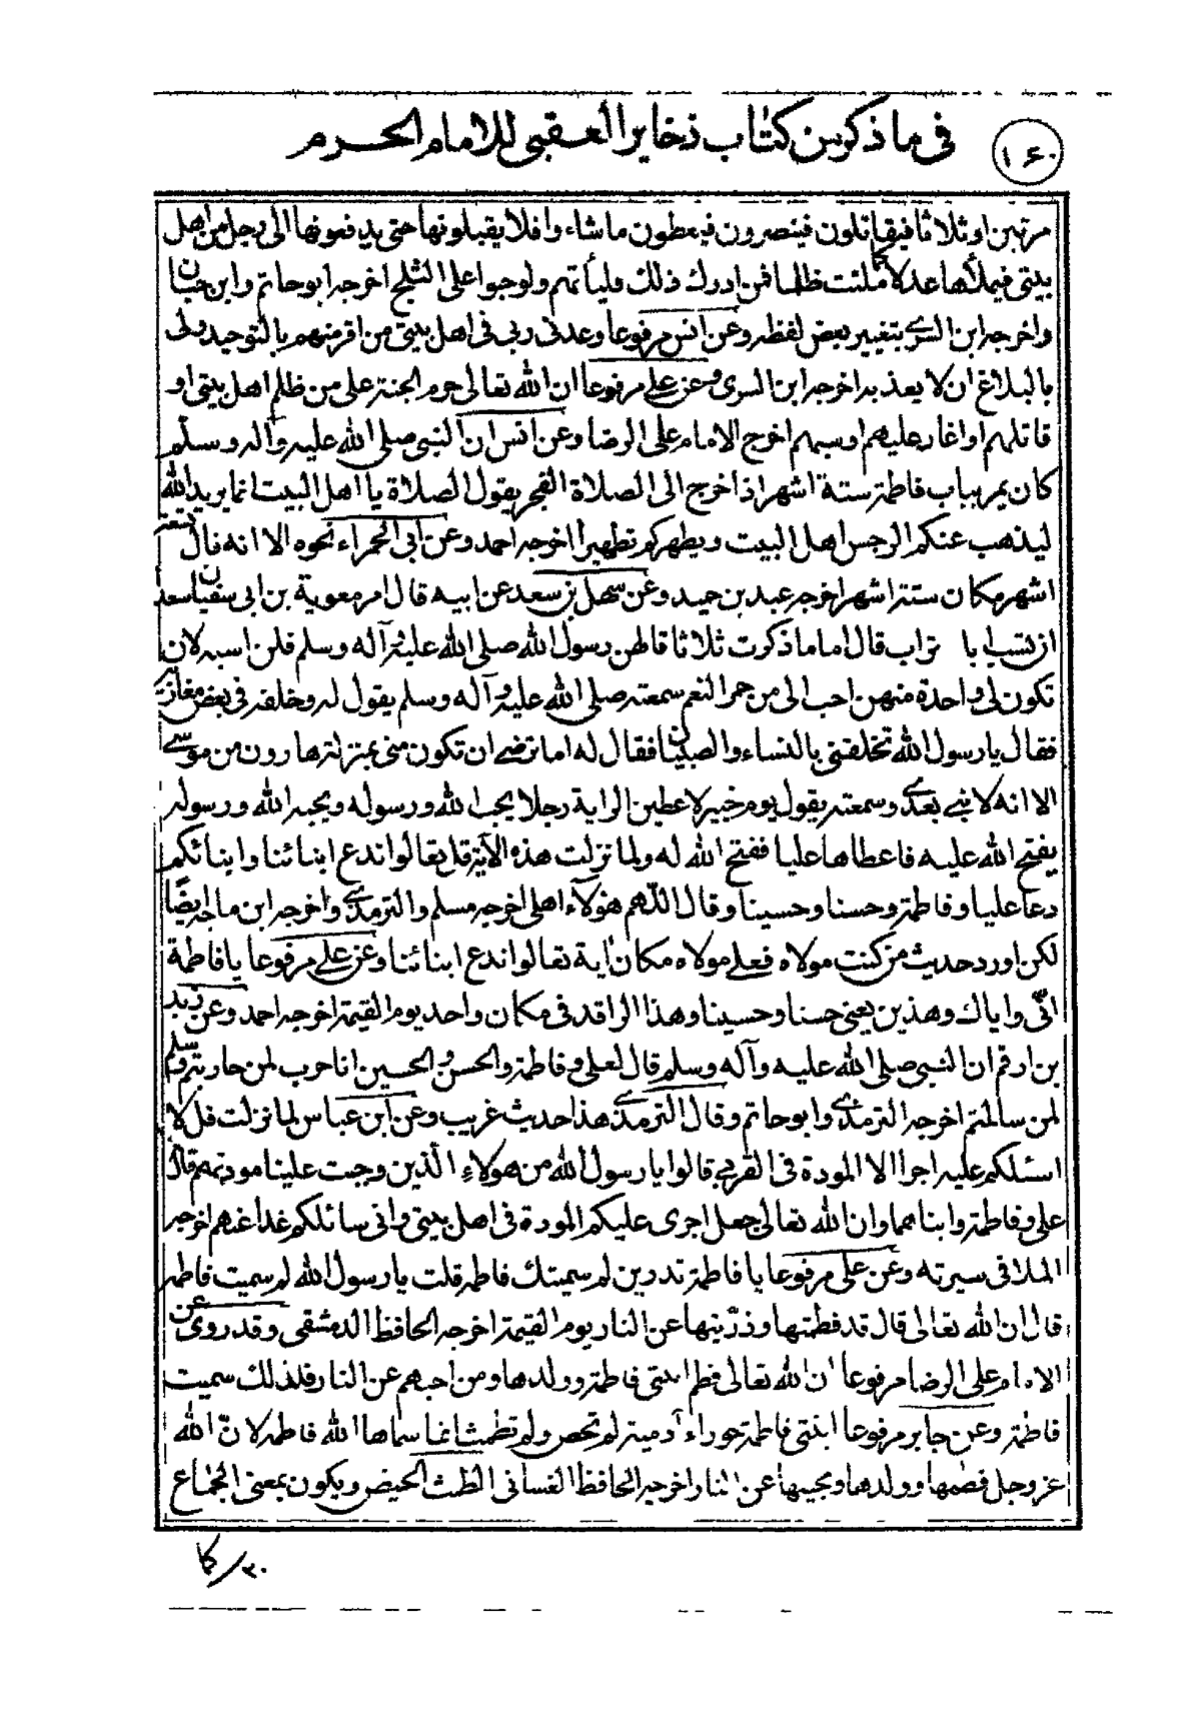 ١٦٠
فى ما ذكر من كتاب ذخاير العقبى للامام الحرم
مرتين او ثلاثا فيقاتلون فينصرون فيعطون ما شاء وا فلا يقبلونها حتى يدفعونها الى رجل من اهل
بيتى فيملأها عدلا كما ملئت ظلما فمن ادرك ذلك فليأتهم ولو حبوا على الثلج اخرجه ابو حاتم وابن حبان
واخرجه ابن السرى بتغيير بعض لفظه وعن انس مرفوعا وعدنى ربى فى اهل بيتى من اقر منهم بالتوحيد ولى
بالبلاغ ان لا يعذبه اخرجه ابن السرى وعن على مرفوعا ان الله تعالى حرم الجنة على من ظلم اهل بيتى او
قاتلهم او اغار عليهم او سبهم اخرج الامام على الرضا وعن انس ان النبى صلى الله عليه وآله وسلم
كان يمر بباب فاطمة ستة اشهر اذا خرج الى الصلاة الفجر يقول الصلاة يا اهل البيت انما يريد الله
ليذهب عنكم الرجس اهل البيت ويطهركم تطهيرا اخرجه احمد وعن ابى الحمراء نحوه الا انه قال تسعة
اشهر مكان ستة اشهر اخرجه عبد بن حميد وعن سهل بن سعد عن ابيه قال امر معوية بن ابى سفيان سعدا
ان يسب ابا تراب قال اما ما ذكرت ثلاثا قالهن رسول الله صلى الله عليه وآله وسلم فلن اسبه لان
تكون لى واحدة منهن احب الى من حمر النعم سمعته صلى الله عليه وآله وسلم يقول له وخلفه فى بعض مغازيه
فقال يا رسول الله تخلفنى بالنساء والصبيان فقال له اما ترضى ان تكون منى بمنزلة هارون من موسى
الا انه لا نبى بعدى وسمعته يقول يوم خيبر لاعطين الراية رجلا يحب الله ورسوله ويحبه الله ورسوله
يفتح الله عليه فاعطاها عليا ففتح الله له ولما نزلت هذه الآية قل تعالوا ندع ابنائنا وابنائكم
دعا عليا وفاطمة وحسنا وحسينا وقال اللهم هؤلاء اهلى اخرجه مسلم والترمذى واخرجه ابن ماجه ايضًا
لكن اورد حديث من كنت مولاه فعلى مولاه مكان اية تعالوا ندع ابنائنا وعن على مرفوعا يا فاطمة
انّى واياك وهذين يعنى حسنا وحسينا وهذا الراقد فى مكان واحد يوم القيمة اخرجه احمد وعن زيد
بن ارقم ان النبى صلى الله عليه وآله وسلم قال لعلى وفاطمة والحسن والحسين انا حرب لمن حاربتم وسلم
لمن سالمتم اخرجه الترمذى وابو حاتم وقال الترمذى هذا حديث غريب وعن ابن عباس لما نزلت قل لا
اسئلكم عليه اجرا الا المودة فى القربى قالوا يا رسول الله من هؤلاءِ الّذين وجبت علينا مودتهم قال
على وفاطمة وابناهما وان الله تعالى جعل اجرى عليكم المودة فى اهل بيتى وانى سائلكم غدا عنهم اخرجه
الملا فى سيرته وعن على مرفوعا يا فاطمة تدرين لم سميتك فاطمة قلت يا رسول الله لم سميت فاطمة
قال ان الله تعالى قال قد فطمتها وذرّيتها عن النار يوم القيمة اخرجه الحافظ الدمشقى وقد روى عن
الامام على الرضا مرفوعا ان الله تعالى فطم ابنتى فاطمة وولدها ومن احبهم عن النار فلذلك سميت
فاطمة وعن جابر مرفوعا ابنتى فاطمة حوراء آدمية لم تحض ولم تطمث انما سماها الله فاطمة لانّ الله
عز وجل فطمها وولدها ومحبيها عن النار اخرجه الحافظ الغسانى الطمث الحيض ويكون بمعنى الجماع